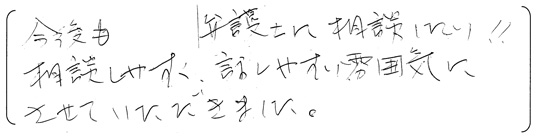 今後も 弁護士に相談したい!!
相談しやすく、話しやすい雰囲気に
させていただきました。